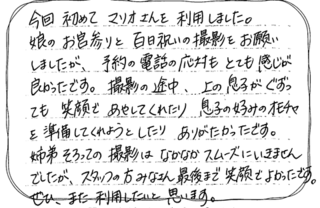 今回 初めて マリオさんを利用しました。
娘のお宮参りと百日祝いの撮影をお願い
しましたが、予約の電話の応対もとても感じが
良かったです。撮影の途中、上の息子がぐずっ
ても 笑顔で あやしてくれたり 息子の好みのオモチャ
を準備してくれようとしたり ありがたかったです。
姉弟そろっての撮影は なかなかスムーズにいきません
でしたが、スタッフの方みなさん最後まで笑顔でよかったです。
ぜひ、また利用したいと思います。